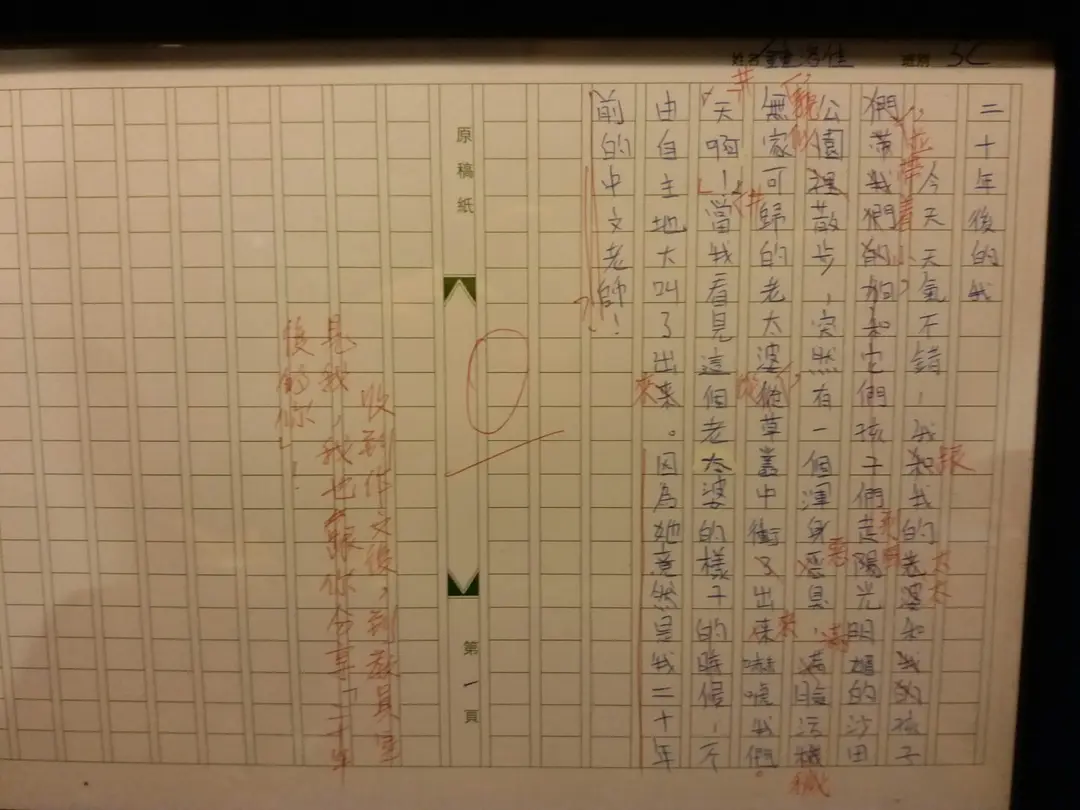 姓名 鍾 佳 班別 5C
二十年後的我
今天天氣不錯,我和我的老婆和我的孩子
們帶我們的狗和它們孩子們走陽光明媚的沙田
公園裡散步,突然有一個渾身惡臭,滿臉污穢
無家可歸的老太婆從草叢中衝了出來嚇唬我們。
天啊!當我看見這個老太婆的樣子的時候,不
由自主地大叫了出来。因為她竟然是我二十年
前的中文老師!
並帶着小
跟
太太
貌似
惡
穢
從
來
來
原稿紙
第一頁
0
收到作文後,到教員室
見我,我也跟你分享「二十年
後的你」!